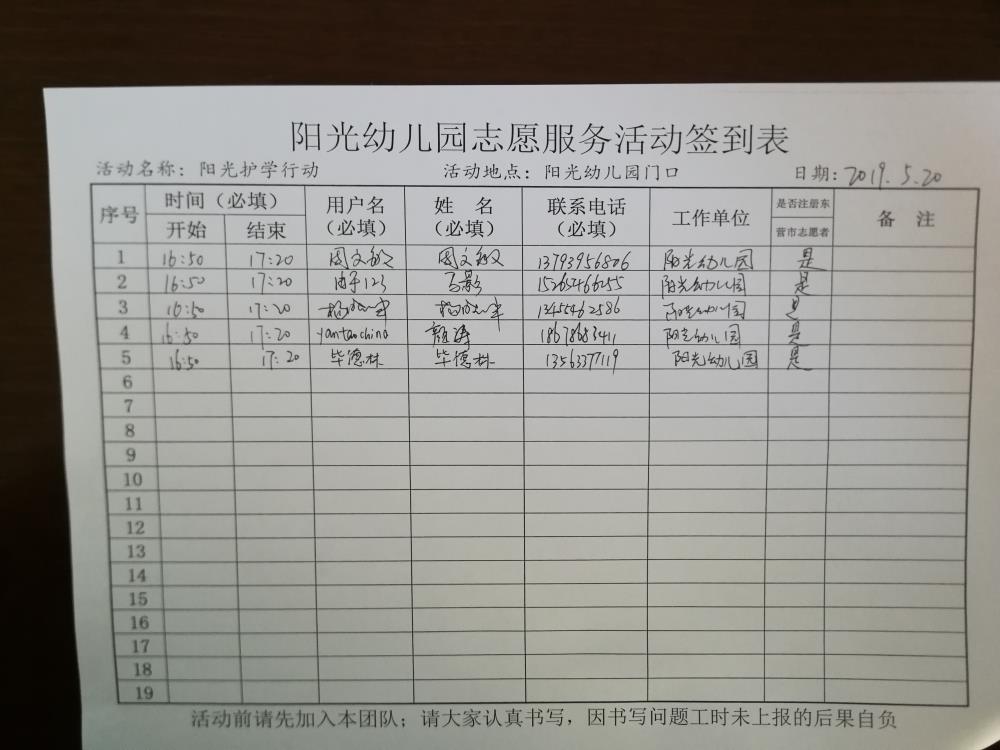 阳光幼儿园志愿服务活动签到表
活动名称：阳光护学行动 活动地点：阳光幼儿园门口 日期：2019.5.20
序号 时间（必填） 用户名（必填） 姓名（必填） 联系电话（必填） 工作单位 是否注册东营市志愿者 备注
开始 结束
1 16:50 17:20 周文 周文 13793956806 阳光幼儿园 是
2 16:50 17:20 123 15265466255 阳光幼儿园 是
3 16:50 17:20 13455462586 阳光幼儿园 是
4 16:50 17:20 yantaochina 颜涛 18678683411 阳光幼儿园 是
5 16:50 17:20 毕德林 毕德林 13563377119 阳光幼儿园 是
6
7
8
9
10
11
12
13
14
15
16
17
18
19
活动前请先加入本团队；请大家认真书写，因书写问题工时未上报的后果自负